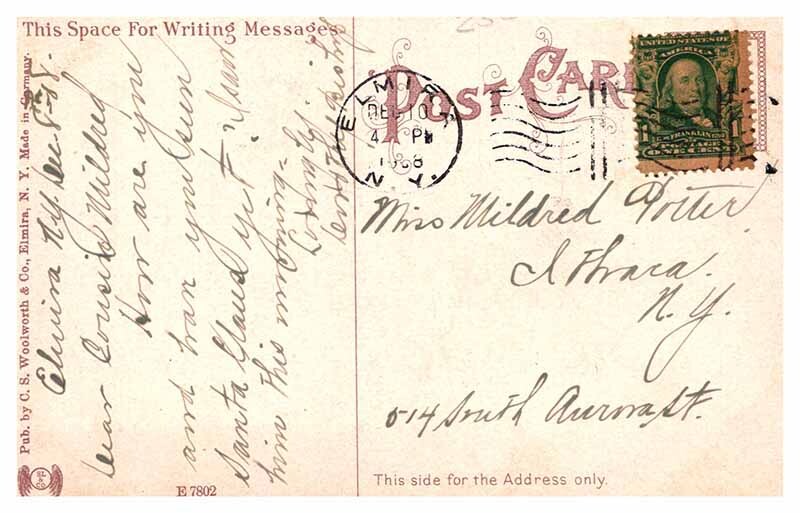 This Space For Writing Messages
POST CARD
Elmira N.Y. Dec 8-08.
Dear Cousin Mildred
How are you
and have you seen
Santa Claus yet. I saw
him this morning.
ELMIRA
DEC 10
4 PM
1908
N.Y.
UNITED STATES OF
AMERICA
FRANKLIN
POSTAGE
ONE CENT
Miss Mildred Potter
Ithaca.
N.Y.
514 South Aurora St.
Pub. by C. S. Woolworth & Co., Elmira, N. Y. Made in Germany.
SL
& CO
E 7802
This side for the Address only.